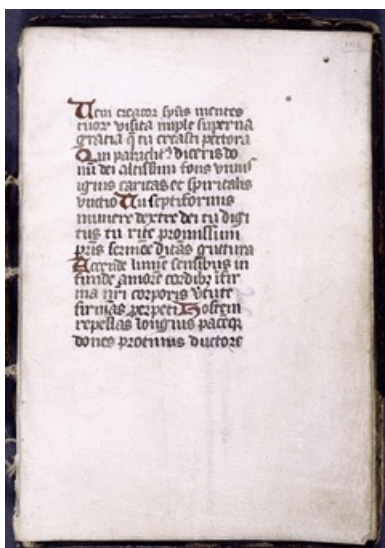 Veni creator sp̄us mentes
tuoꝝ visita imple superna
gratia q̄ tu creasti pectora
Qui paraclitꝰ diceris do
nū dei altissimi fons viuꝰ
ignis caritas et spiritalis
vnctio Tu septiformis
munere dextre dei tu digi
tus tu rite promissum
pr̄is sermōe ditās guttura
Accende lumē sensibus in
funde amorē cordibꝰ īfir
ma nr̄i corporis v̄tute
firmās perpeti Hostem
repellas longius pacēqꝫ
dones protinus ductore